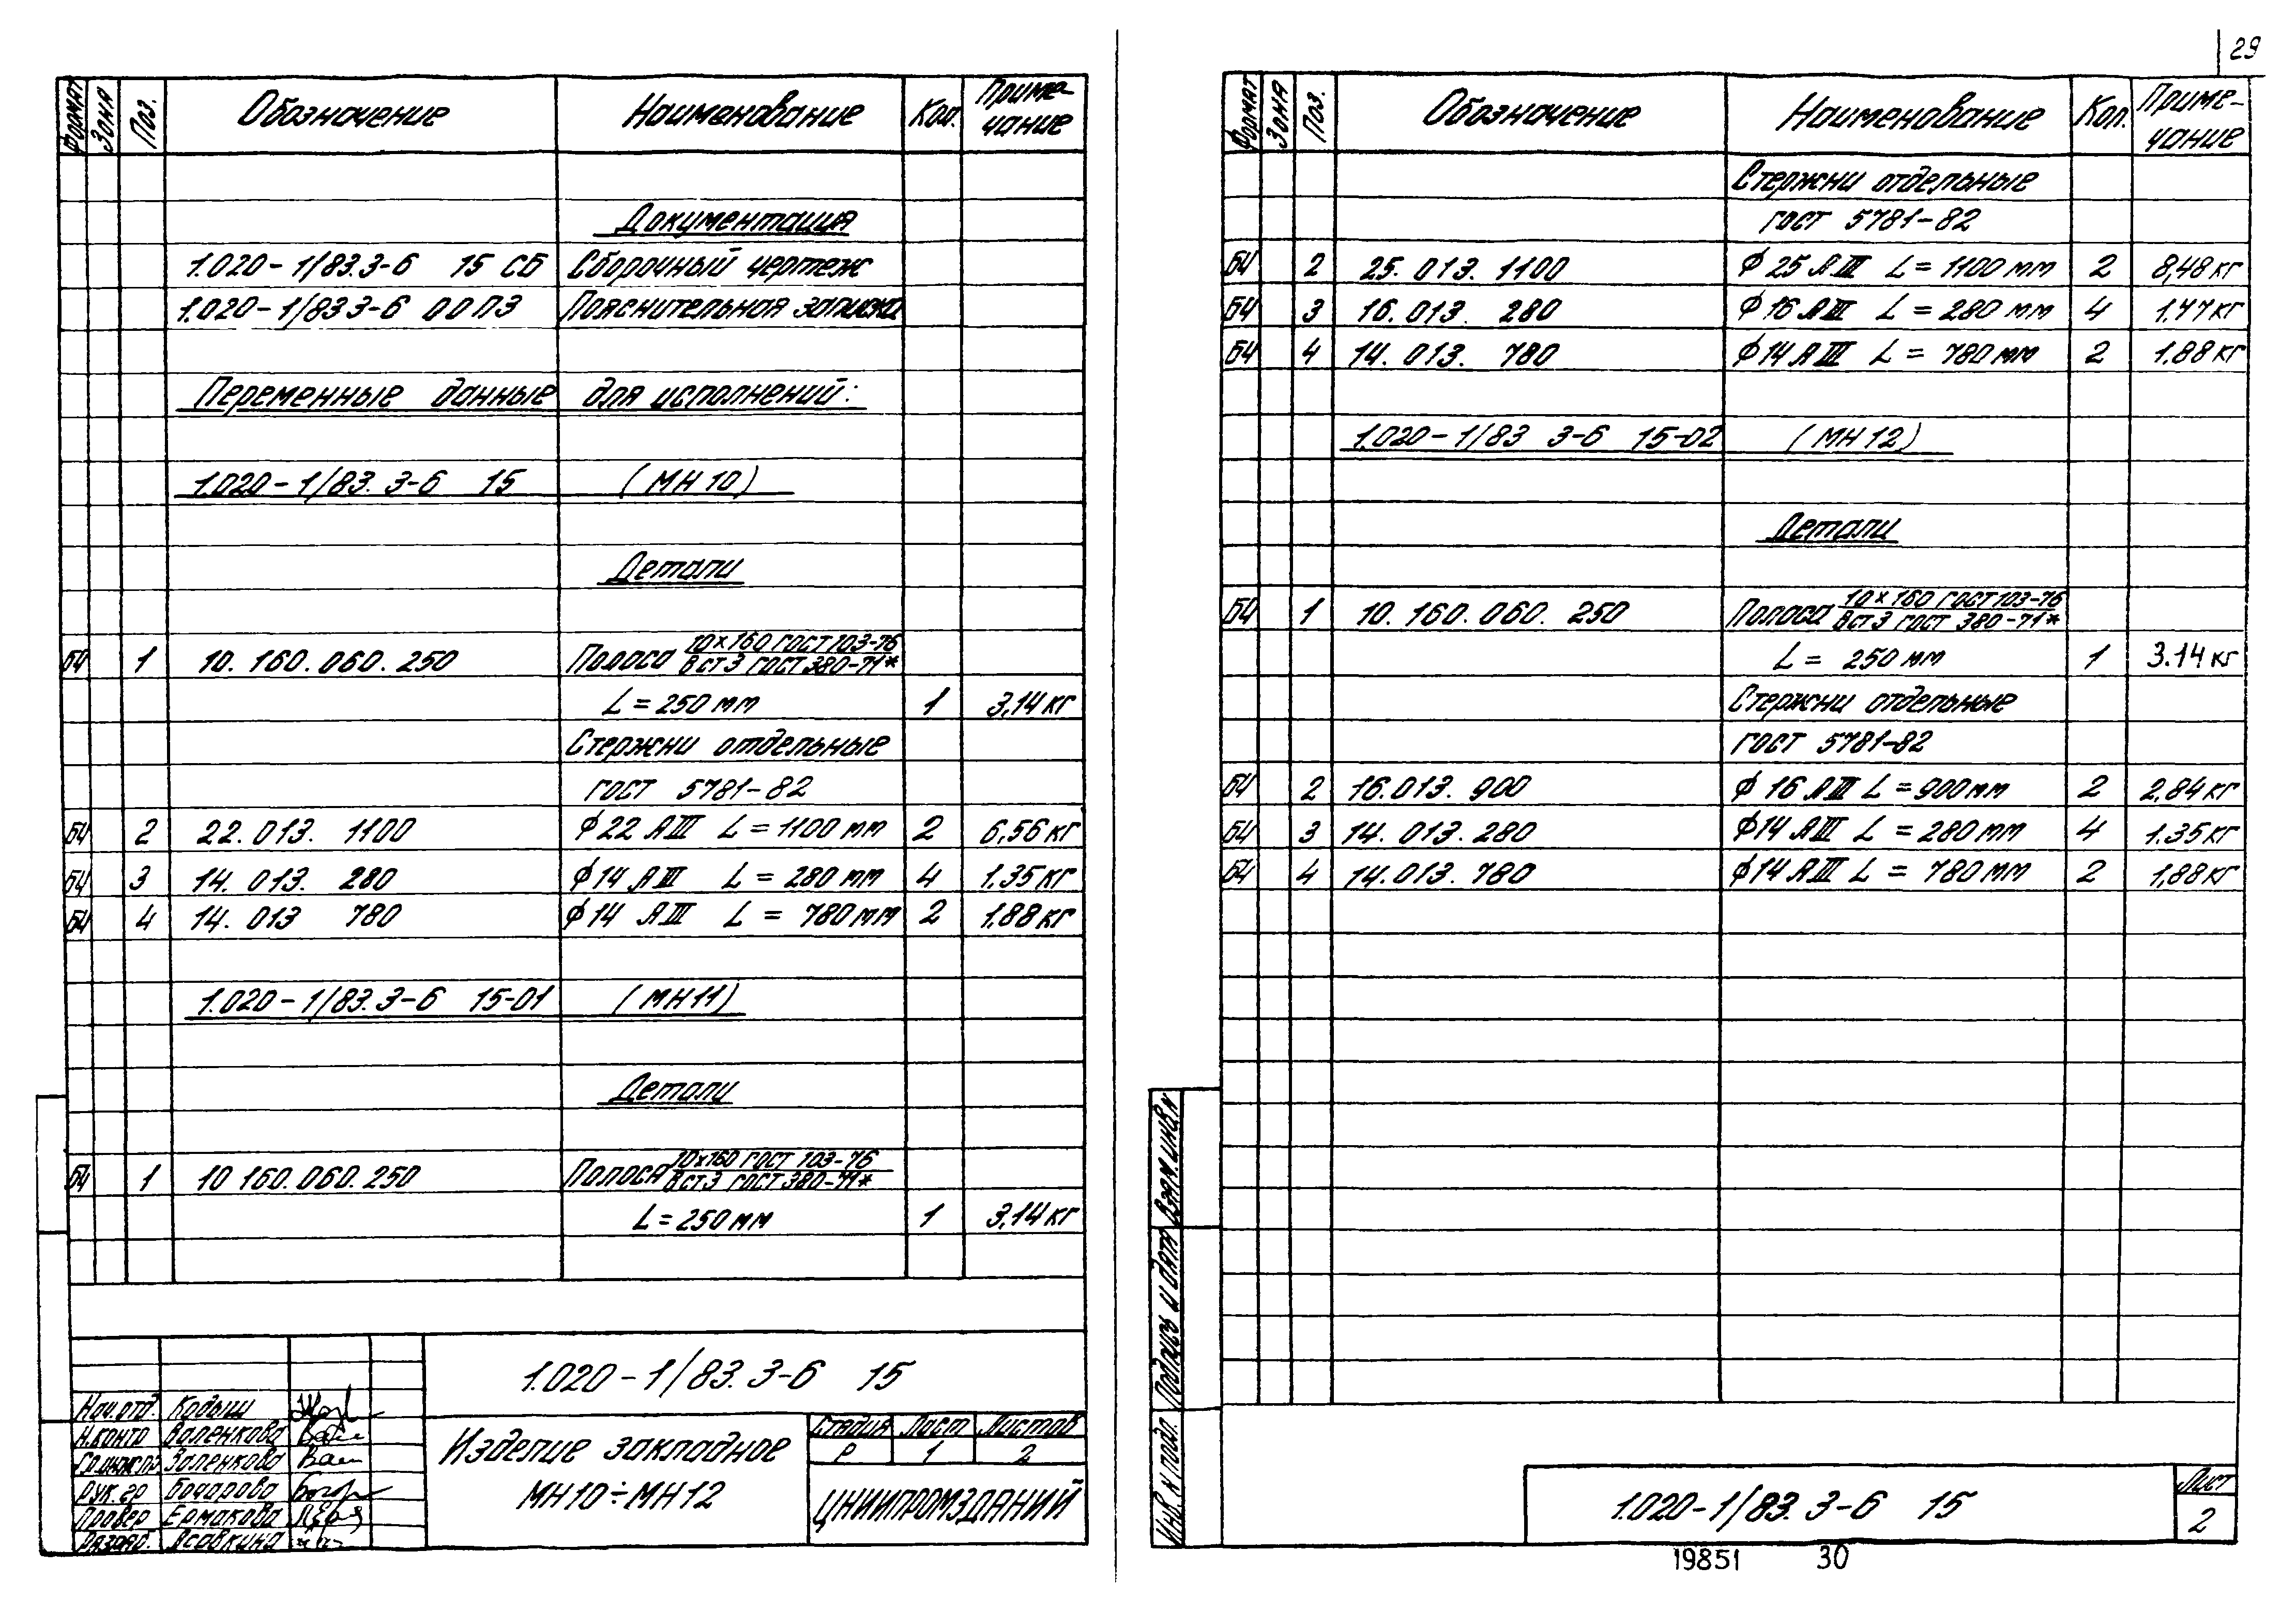 29
Формат Зона Поз. Обозначение Наименование Кол. Приме-
чание
Документация
1.020-1/83.3-6 15 СБ Сборочный чертеж
1.020-1/83 3-6 00ПЗ Пояснительная записка
Переменные данные для исполнений:
1.020-1/83. 3-6 15 (МН 10)
Детали
БЧ 1 10. 160. 060. 250 Полоса 10×160 ГОСТ 103-76
В Ст 3 ГОСТ 380-71*
L = 250 мм 1 3,14 кг
Стержни отдельные
ГОСТ 5781-82
БЧ 2 22. 013. 1100 ф 22 АIII L = 1100 мм 2 6,56 кг
БЧ 3 14. 013. 280 ф 14 АIII L = 280 мм 4 1.35 кг
БЧ 4 14. 013 780 ф 14 АIII L = 780 мм 2 1.88 кг
1.020-1/83. 3-6 15-01 (МН11)
Детали
БЧ 1 10 160. 060. 250 Полоса 10×160 ГОСТ 103-76
В Ст 3 ГОСТ 380-71*
L = 250 мм 1 3,14 кг
1.020-1/83. 3-6 15
Нач. отд. Кодыш
Н. контр Валенкова
Рук. гр Бочарова
Провер Ермакова
Разраб.
Изделие закладное
МН10÷МН12
Стадия Лист Листов
Р 1 2
ЦНИИПРОМЗДАНИЙ
Формат Зона Поз. Обозначение Наименование Кол. Приме-
чание
Стержни отдельные
ГОСТ 5781-82
БЧ 2 25. 013. 1100 ф 25 АIII L = 1100 мм 2 8,48 кг
БЧ 3 16. 013. 280 ф 16 АIII L = 280 мм 4 1.77 кг
БЧ 4 14. 013. 780 ф 14 АIII L = 780 мм 2 1.88 кг
1.020-1/83 3-6 15-02 (МН 12)
Детали
БЧ 1 10. 160. 060. 250 Полоса 10×160 ГОСТ 103-76
В ст 3 ГОСТ 380-71*
L = 250 мм 1 3.14 кг
Стержни отдельные
ГОСТ 5781-82
БЧ 2 16. 013. 900 ф 16 АIII L = 900 мм 2 2,84 кг
БЧ 3 14. 013. 280 ф 14 АIII L = 280 мм 4 1.35 кг
БЧ 4 14. 013. 780 ф 14 АIII L = 780 мм 2 1,88 кг
Взам. инв. N
Подпись и дата
Инв. N подл.
1.020-1/83. 3-6 15
Лист
2
19851 30